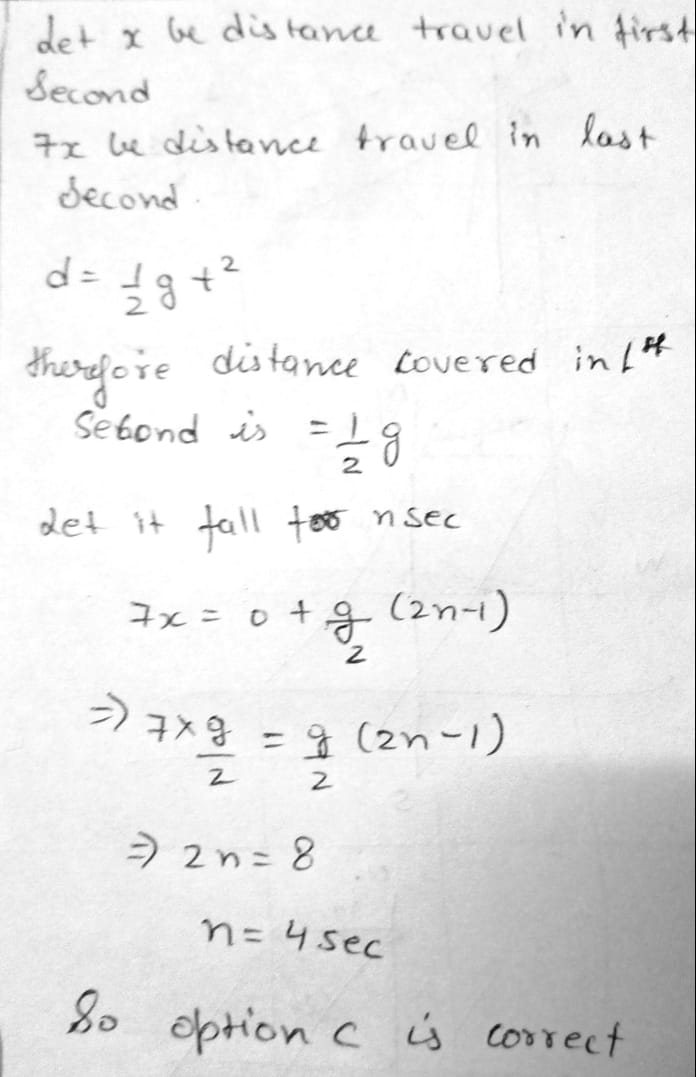 Let x be distance travel in first
Second
7x be distance travel in last
Second.
d = 1/2 g t²
therefore distance covered in 1st
Second is = 1/2 g
Let it fall for n sec
7x = 0 + g/2 (2n-1)
⇒ 7 × g/2 = g/2 (2n-1)
⇒ 2n = 8
n = 4 sec
So option c is correct